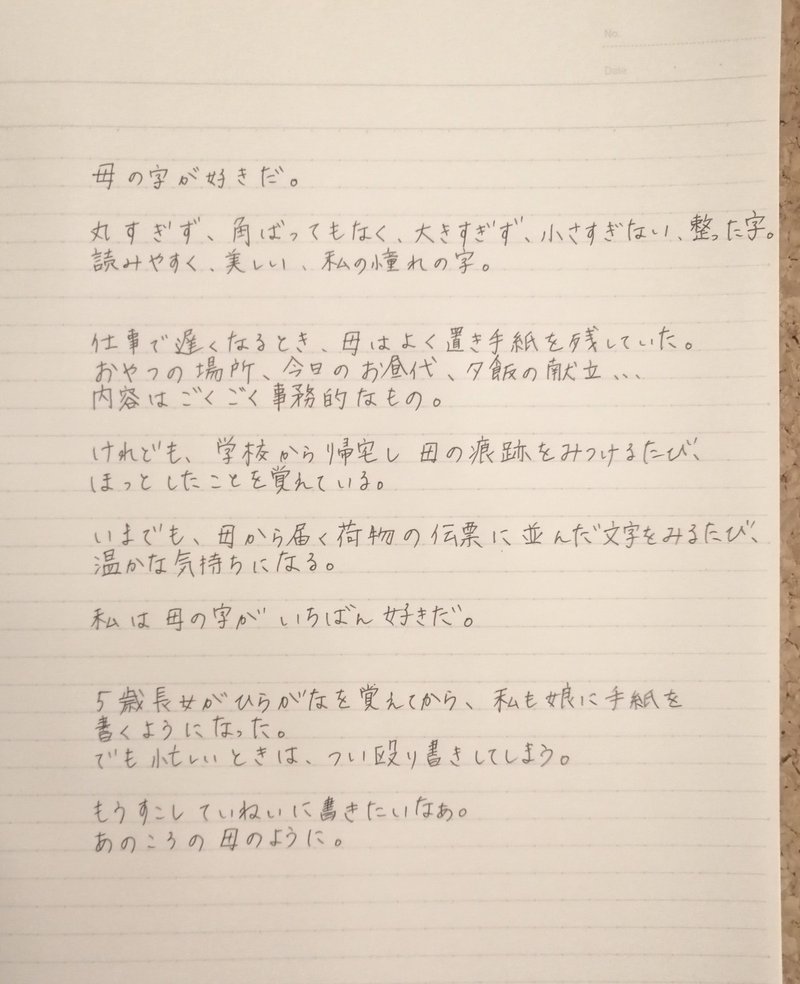 No.
Date
母の字が好きだ。
丸すぎず、角ばってもなく、大きすぎず、小さすぎない、整った字。
読みやすく、美しい、私の憧れの字。
仕事で遅くなるとき、母はよく置き手紙を残していた。
おやつの場所、今日のお昼代、夕飯の献立、、、
内容はごくごく事務的なもの。
けれども、学校から帰宅し母の痕跡をみつけるたび、
ほっとしたことを覚えている。
いまでも、母から届く荷物の伝票に並んだ文字をみるたび、
温かな気持ちになる。
私は母の字がいちばん好きだ。
5歳長女がひらがなを覚えてから、私も娘に手紙を
書くようになった。
でも忙しいときは、つい殴り書きしてしまう。
もうすこしていねいに書きたいなあ。
あのころの母のように。